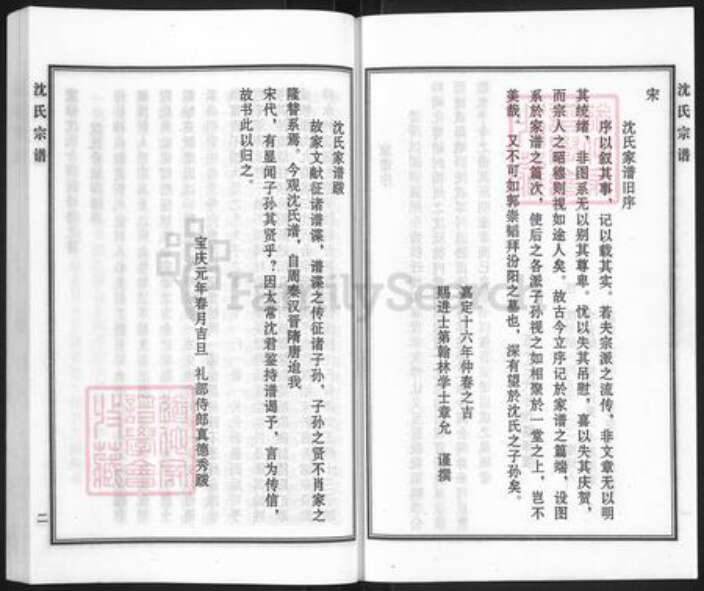 沈氏宗谱
宋
沈氏家谱旧序
序以叙其事，记以载其实。若夫宗派之流传，非文章无以明
其统绪，非图系无以别其尊卑。忧以失其吊慰，喜以失其庆贺，
而宗人之昭穆则视如途人矣。故古今立序记於家谱之篇端，设图
系於家谱之篇次，使后之各派子孙视之如相聚於一堂之上，岂不
美哉。又不可如郭崇韬拜汾阳之墓也，深有望於沈氏之子孙矣。
嘉定十六年仲春之吉
赐进士第翰林学士章允 谨撰
沈氏家谱跋
故家文献征诸谱谍，谱谍之传征诸子孙，子孙之贤不肖家之
隆替系焉。今观沈氏谱，自周秦汉晋隋唐迨我
宋代，有显闻子孙其贤乎？因太常沈君鉴持谱谒予，言为传信，
故书此以归之。
宝庆元年春月吉旦 礼部侍郎真德秀跋
沈氏宗谱
二
FamilySearch